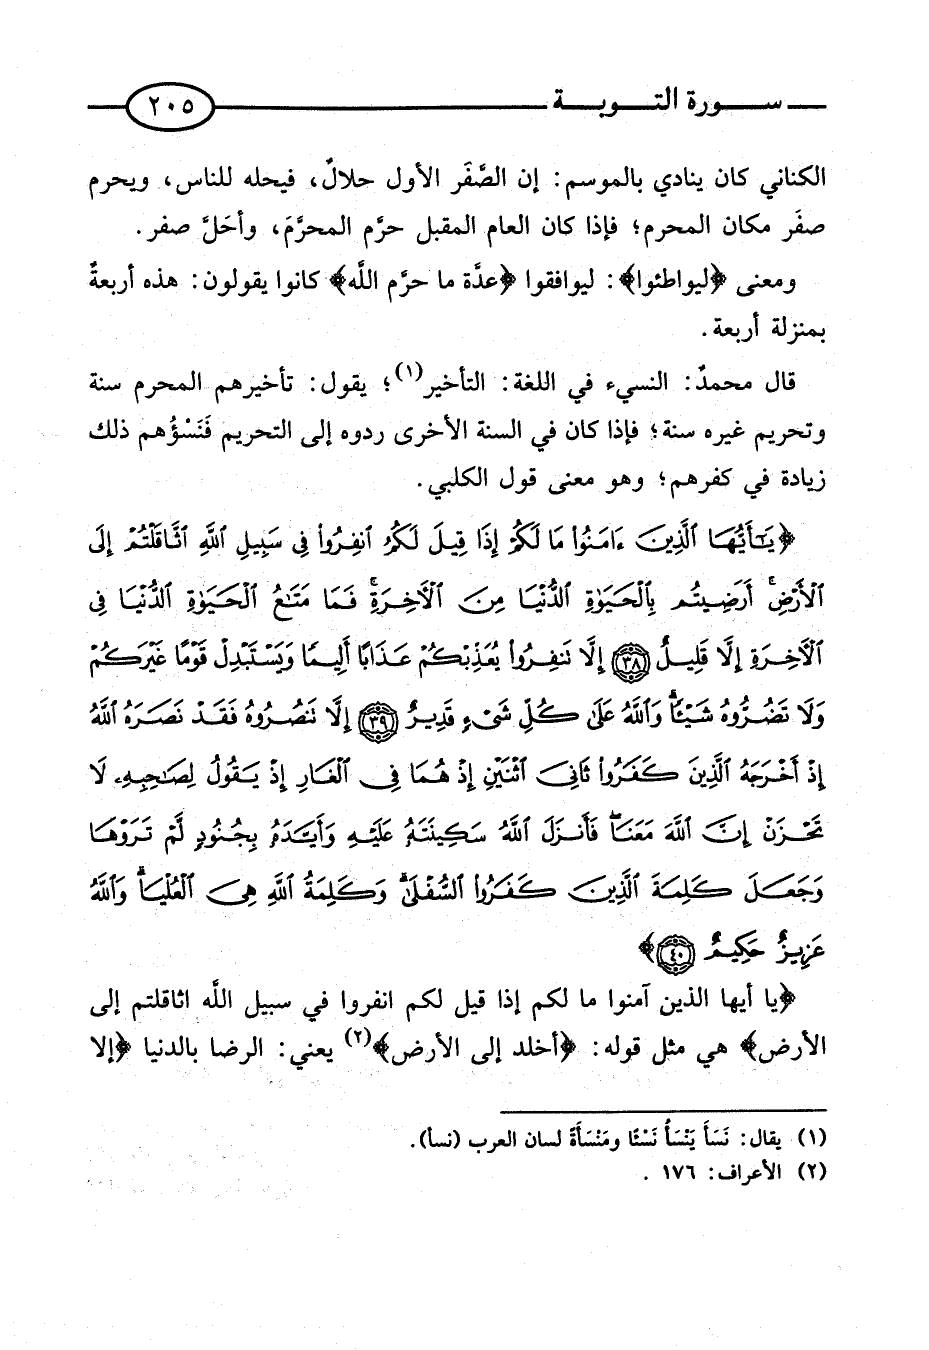 سورة التوبة ٢٠٥
الكناني كان ينادي بالموسم: إن الصَّفَر الأول حلالٌ، فيحله للناس، ويحرم
صفَر مكان المحرم؛ فإذا كان العام المقبل حرَّم المحرَّمَ، وأحَلَّ صفر.
ومعنى ﴿ليواطئوا﴾: ليوافقوا ﴿عدَّة ما حرَّم اللَّه﴾ كانوا يقولون: هذه أربعةٌ
بمنزلة أربعة.
قال محمدٌ: النسيء في اللغة: التأخير(١)؛ يقول: تأخيرهم المحرم سنة
وتحريم غيره سنة؛ فإذا كان في السنة الأخرى ردوه إلى التحريم فَنَسْؤُهم ذلك
زيادة في كفرهم؛ وهو معنى قول الكلبي.
﴿يَٰٓأَيُّهَا ٱلَّذِينَ ءَامَنُوا۟ مَا لَكُمْ إِذَا قِيلَ لَكُمُ ٱنفِرُوا۟ فِى سَبِيلِ ٱللَّهِ ٱثَّاقَلْتُمْ إِلَى
ٱلْأَرْضِ ۚ أَرَضِيتُم بِٱلْحَيَوٰةِ ٱلدُّنْيَا مِنَ ٱلْـَٔاخِرَةِ ۚ فَمَا مَتَٰعُ ٱلْحَيَوٰةِ ٱلدُّنْيَا فِى
ٱلْـَٔاخِرَةِ إِلَّا قَلِيلٌ ٣٨ إِلَّا تَنفِرُوا۟ يُعَذِّبْكُمْ عَذَابًا أَلِيمًا وَيَسْتَبْدِلْ قَوْمًا غَيْرَكُمْ
وَلَا تَضُرُّوهُ شَيْـًٔا ۗ وَٱللَّهُ عَلَىٰ كُلِّ شَىْءٍ قَدِيرٌ ٣٩ إِلَّا تَنصُرُوهُ فَقَدْ نَصَرَهُ ٱللَّهُ
إِذْ أَخْرَجَهُ ٱلَّذِينَ كَفَرُوا۟ ثَانِىَ ٱثْنَيْنِ إِذْ هُمَا فِى ٱلْغَارِ إِذْ يَقُولُ لِصَٰحِبِهِۦ لَا
تَحْزَنْ إِنَّ ٱللَّهَ مَعَنَا ۖ فَأَنزَلَ ٱللَّهُ سَكِينَتَهُۥ عَلَيْهِ وَأَيَّدَهُۥ بِجُنُودٍ لَّمْ تَرَوْهَا
وَجَعَلَ كَلِمَةَ ٱلَّذِينَ كَفَرُوا۟ ٱلسُّفْلَىٰ ۗ وَكَلِمَةُ ٱللَّهِ هِىَ ٱلْعُلْيَا ۗ وَٱللَّهُ
عَزِيزٌ حَكِيمٌ ٤٠﴾
﴿يا أيها الذين آمنوا ما لكم إذا قيل لكم انفروا في سبيل اللَّه اثاقلتم إلى
الأرض﴾ هي مثل قوله: ﴿أخلد إلى الأرض﴾(٢) يعني: الرضا بالدنيا ﴿إلا
(١) يقال: نَسَأَ يَنْسَأُ نَسْئًا ومَنْسَأَةً لسان العرب (نسأ).
(٢) الأعراف: ١٧٦.